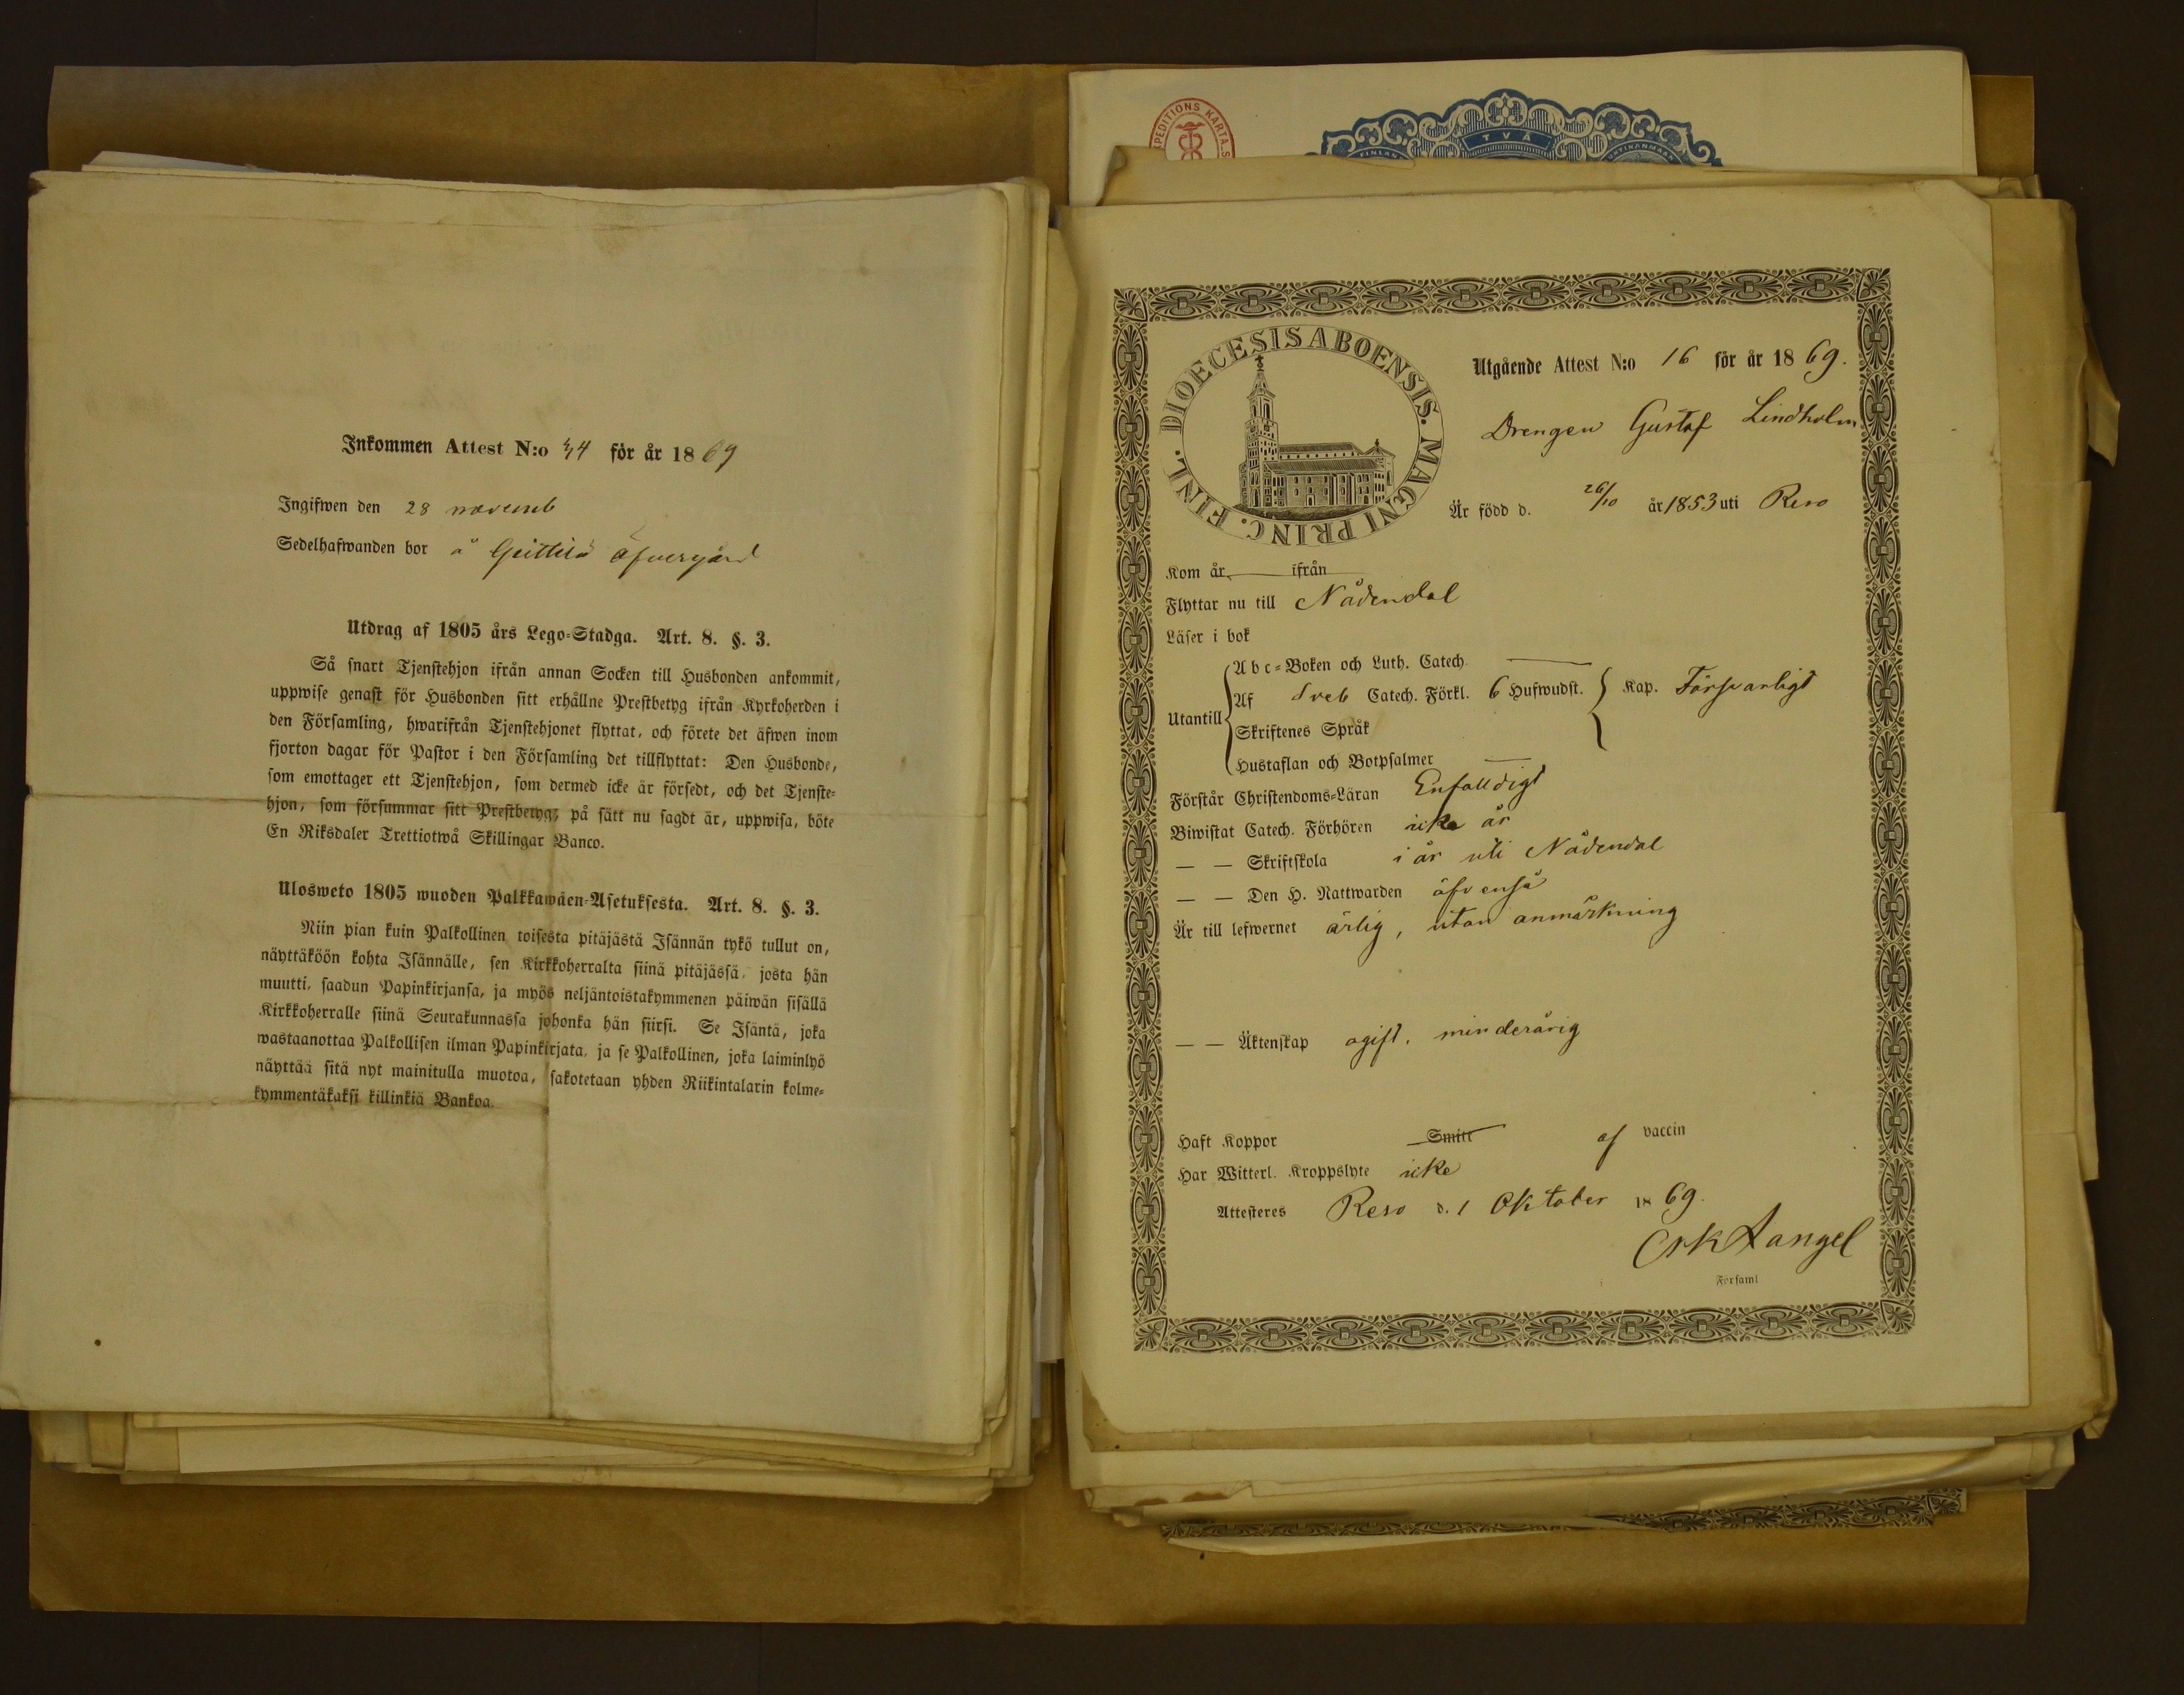 Inkommen Attest N:o 34 för år 1869
Ingifwen den 28 novemb
Sedelhafwanden bor å Geittilä Öfvergård
Utdrag af 1805 års Lego-Stadga. Art. 8. §. 3.
Så snart Tjenstehjon ifrån annan Socken till Husbonden ankommit,
uppwise genast för Husbonden sitt erhållne Prestbetyg ifrån Kyrkoherden i
den Församling, hwarifrån Tjenstehjonet flyttat, och förete det äfwen inom
fjorton dagar för Pastor i den Församling det tillflyttat: Den Husbonde,
som emottager ett Tjenstehjon, som dermed icke är försedt, och det Tjenste-
hjon, som försummar sitt Prestbetyg, på sätt nu sagdt är, uppwisa, böte
En Riksdaler Trettiotwå Skillingar Banco.
Ulosweto 1805 wuoden Palkkawäen-Asetuksesta. Art. 8. §. 3.
Niin pian kuin Palkollinen toisesta pitäjästä Isännän tykö tullut on,
näyttäköön kohta Isännälle, sen Kirkkoherralta siinä pitäjässä, josta hän
muutti, saadun Papinkirjansa, ja myös neljäntoistakymmenen päiwän sisällä
Kirkkoherralle siinä Seurakunnassa johonka hän siirsi. Se Isäntä, joka
wastaanottaa Palkollisen ilman Papinkirjata, ja se Palkollinen, joka laiminlyö
näyttää sitä nyt mainitulla muotoa, sakotetaan yhden Riikintalarin kolme-
kymmentäkaksi killinkiä Bankoa.
EXPEDITIONS KARTA
TVÅ
FINLAND
DIOECESIS ABOENSIS. MAGNI PRINC. FINL.
Utgående Attest N:o 16 för år 1869.
Drengen Gustaf Lindholm
Är född d. 26/10 år 1853 uti Reso
Kom år ifrån
Flyttar nu till Nådendal
Läser i bok
Utantill
Abc-Boken och Luth. Catech.
Af Sveb Catech. Förkl. 6 Hufwudst. Kap. Försvarligt
Skriftenes Språk
Hustaflan och Botpsalmer
Förstår Christendoms-Läran Enfalldigt
Biwistat Catech. Förhören icke år
— — Skriftskola i år uti Nådendal
— — Den H. Nattwarden äfvenså
Är till lefwernet ärlig, utan anmärkning
— — Äktenskap ogift, minderårig
Haft Koppor Smitt af vaccin
Har Witterl. Kroppslyte icke
Attesteres Reso d. 1 Oktober 1869.
Församl